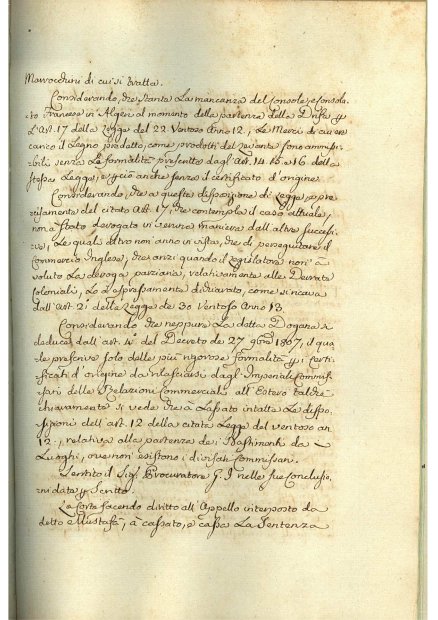 Marrocchini di cui si tratta.
Considerando, che stante La mancanza del Console, e Consola-
to Francese in Algeri al momento della partenza della Presa, p
L'Art. 17 della Legge del 22 Ventoso Anno 12, Le Merci di cui era
carico il Legno predatto, come prodotti del Levante sono ammis-
sibili senza Le formalità prescritte dagl'Art. 14. 15. e 16 della
stessa Legge, e p ciò anche senza il certificato d'origine.
Considerando, che a queste disposizione di Legge, e p re-
plicatamente del citato Art. 17, che contempla il caso attuale,
non è stato derogato in veruna maniera dall'altre successi-
ve, Le quali altro non anno in vista, che di perseguitare il
Commercio Inglese, che anzi quando il Legislatore non à
voluto La deroga parziaria, relativamente alle Derrate
Coloniali, Lo à espressamente dichiarato, come si ricava
dall'Art. 2.° della Legge de 30 Ventoso Anno 13.
Considerando che neppure La detta Dogana à
dedurre dall'art. 4.° del Decreto de 27 9bre 1807, il qua-
le prescrive solo delle più rigorose formalità p i Certi-
ficati d'origine da rilasciarsi dagl'Imperiali Commis-
sari delle Relazioni Commerciali all'Estero talchè
chiaramente si vede che à Lasciato intatte Le dispo-
sizioni dell'art. 12 della citata Legge del ventoso an
12., relativa alla partenza dei Bastimenti da
Luoghi, ove non esistono i divisati Commissari.
Sentito il Sig. Procuratore G. I nelle sue Conclusio-
ni date p Scritto.
La Corte facendo diritto all'Appello interposto da
detto Mustafà, à cassato, e cassa La Sentenza